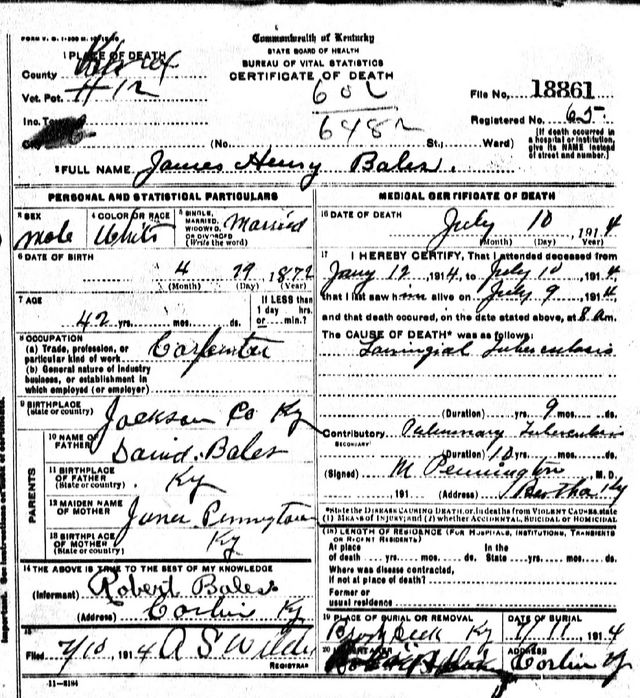 Commonwealth of Kentucky
STATE BOARD OF HEALTH
BUREAU OF VITAL STATISTICS
CERTIFICATE OF DEATH
1 PLACE OF DEATH
County
Vet. Pot.
Inc. Town
City (No. St.; Ward)
602
6482
File No. 18861
Registered No. 65
(If death occurred in a hospital or institution, give its NAME instead of street and number.)
2 FULL NAME James Henry Bales.
PERSONAL AND STATISTICAL PARTICULARS
3 SEX Male
4 COLOR OR RACE White
5 SINGLE, MARRIED, WIDOWED, OR DIVORCED (Write the word) Married
6 DATE OF BIRTH
4 29 1872
(Month) (Day) (Year)
7 AGE
42 yrs. mos. ds.
If LESS than 1 day hrs. or min.?
8 OCCUPATION
(a) Trade, profession, or particular kind of work Carpenter
(b) General nature of industry
business, or establishment in
which employed (or employer)
9 BIRTHPLACE
(State or country) Jackson Co Ky
PARENTS
10 NAME OF FATHER David Bales
11 BIRTHPLACE OF FATHER (State or country) Ky
12 MAIDEN NAME OF MOTHER Pennington
13 BIRTHPLACE OF MOTHER Ky
14 THE ABOVE IS TRUE TO THE BEST OF MY KNOWLEDGE
(Informant) Robert Bales
(Address) Corbin Ky
15
Filed 7/10 1914 A S
REGISTRAR
11-3184
MEDICAL CERTIFICATE OF DEATH
16 DATE OF DEATH July 10 1914
(Month) (Day) (Year)
17 I HEREBY CERTIFY, That I attended deceased from
Jany 12 1914, to July 10 1914
that I last saw him alive on July 9 1914
and that death occured, on the date stated above, at 8 am.
The CAUSE OF DEATH* was as follows:
Tuberculosis
(Duration) yrs. 9 mos. ds.
Contributory Pulmonary Tuberculosis
SECONDARY
(Duration) 10 yrs. mos. ds.
(Signed) M Pennington M.D.
, 191 (Address) Bertha Ky
*State the DISEASE CAUSING DEATH, or, in deaths from VIOLENT CAUSES, state
(1) MEANS OF INJURY; and (2) whether ACCIDENTAL, SUICIDAL or HOMICIDAL
18 LENGTH OF RESIDENCE (FOR HOSPITALS, INSTITUTIONS, TRANSIENTS
OR RECENT RESIDENTS)
At place of death yrs. mos. ds. In the State yrs. mos. ds.
Where was disease contracted,
if not at place of death?
Former or
usual residence
19 PLACE OF BURIAL OR REMOVAL Ky
DATE OF BURIAL 7/11 1914
20
Corbin Ky